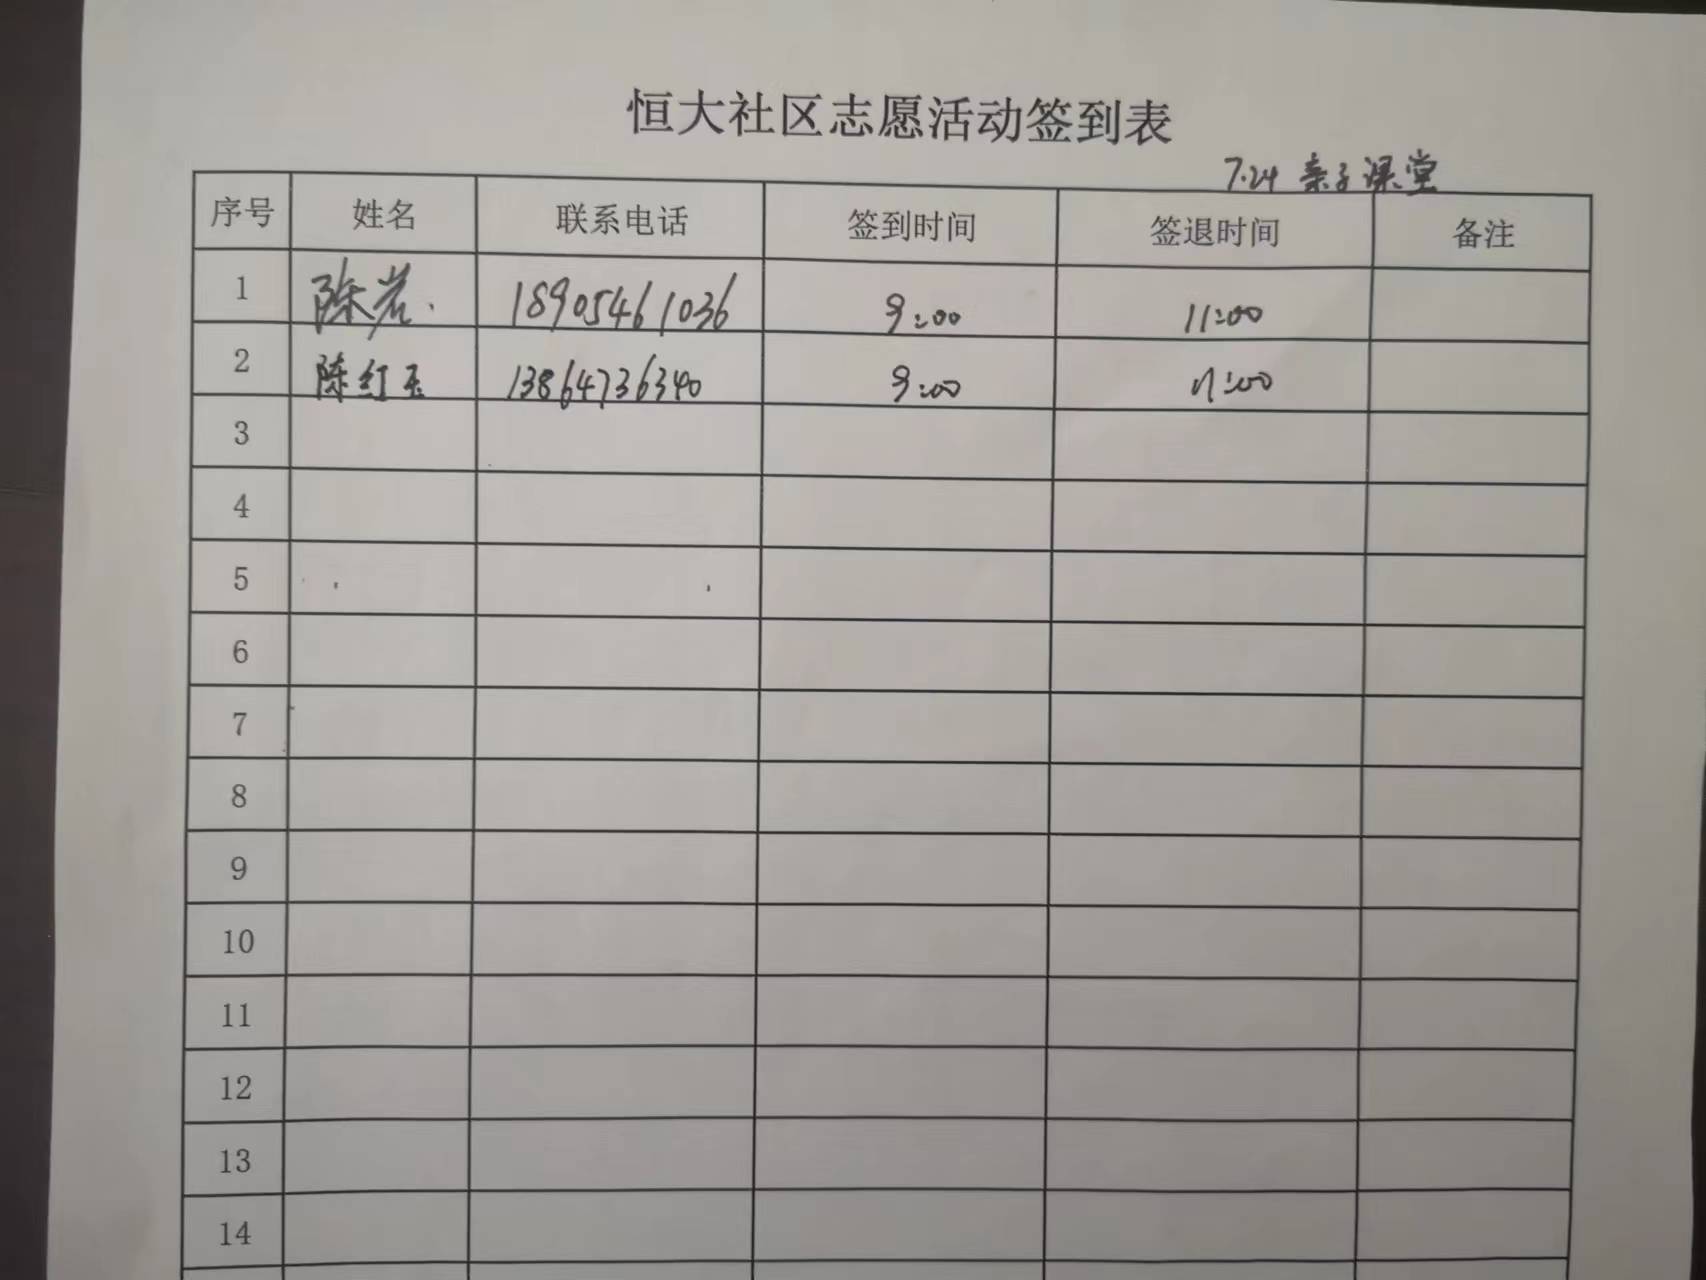 恒大社区志愿活动签到表
7.24 亲子课堂
序号 姓名 联系电话 签到时间 签退时间 备注
1 陈岩 18905461036 9:00 11:00
2 陈红玉 13864736340 9:00 11:00
3
4
5
6
7
8
9
10
11
12
13
14